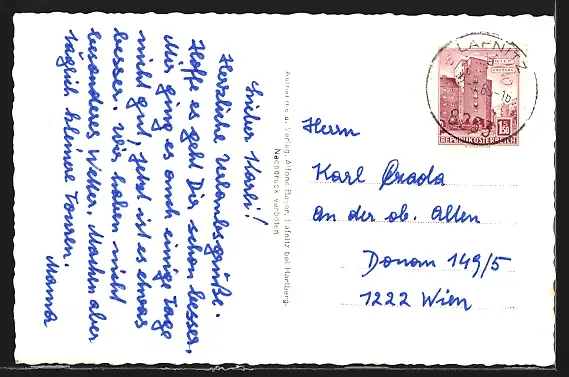 Lieber Karli!
Herzliche Urlaubsgrüße.
Hoffe es geht Dir schon besser,
Mir ging es auch einige Tage
nicht gut, jetzt ist es etwas
besser. Wir haben nicht
besonderes Wetter. Machen aber
täglich kleine Touren.
Mama
Aufnahme u. Verlag: Alfons Bauer, Lafnitz bei Hartberg.
Nachdruck verboten
LAFNITZ
8233
1.50
REPUBLIK ÖSTERREICH
Herrn
Karl
An der ob. Alten
Donau 149/5
1222 Wien